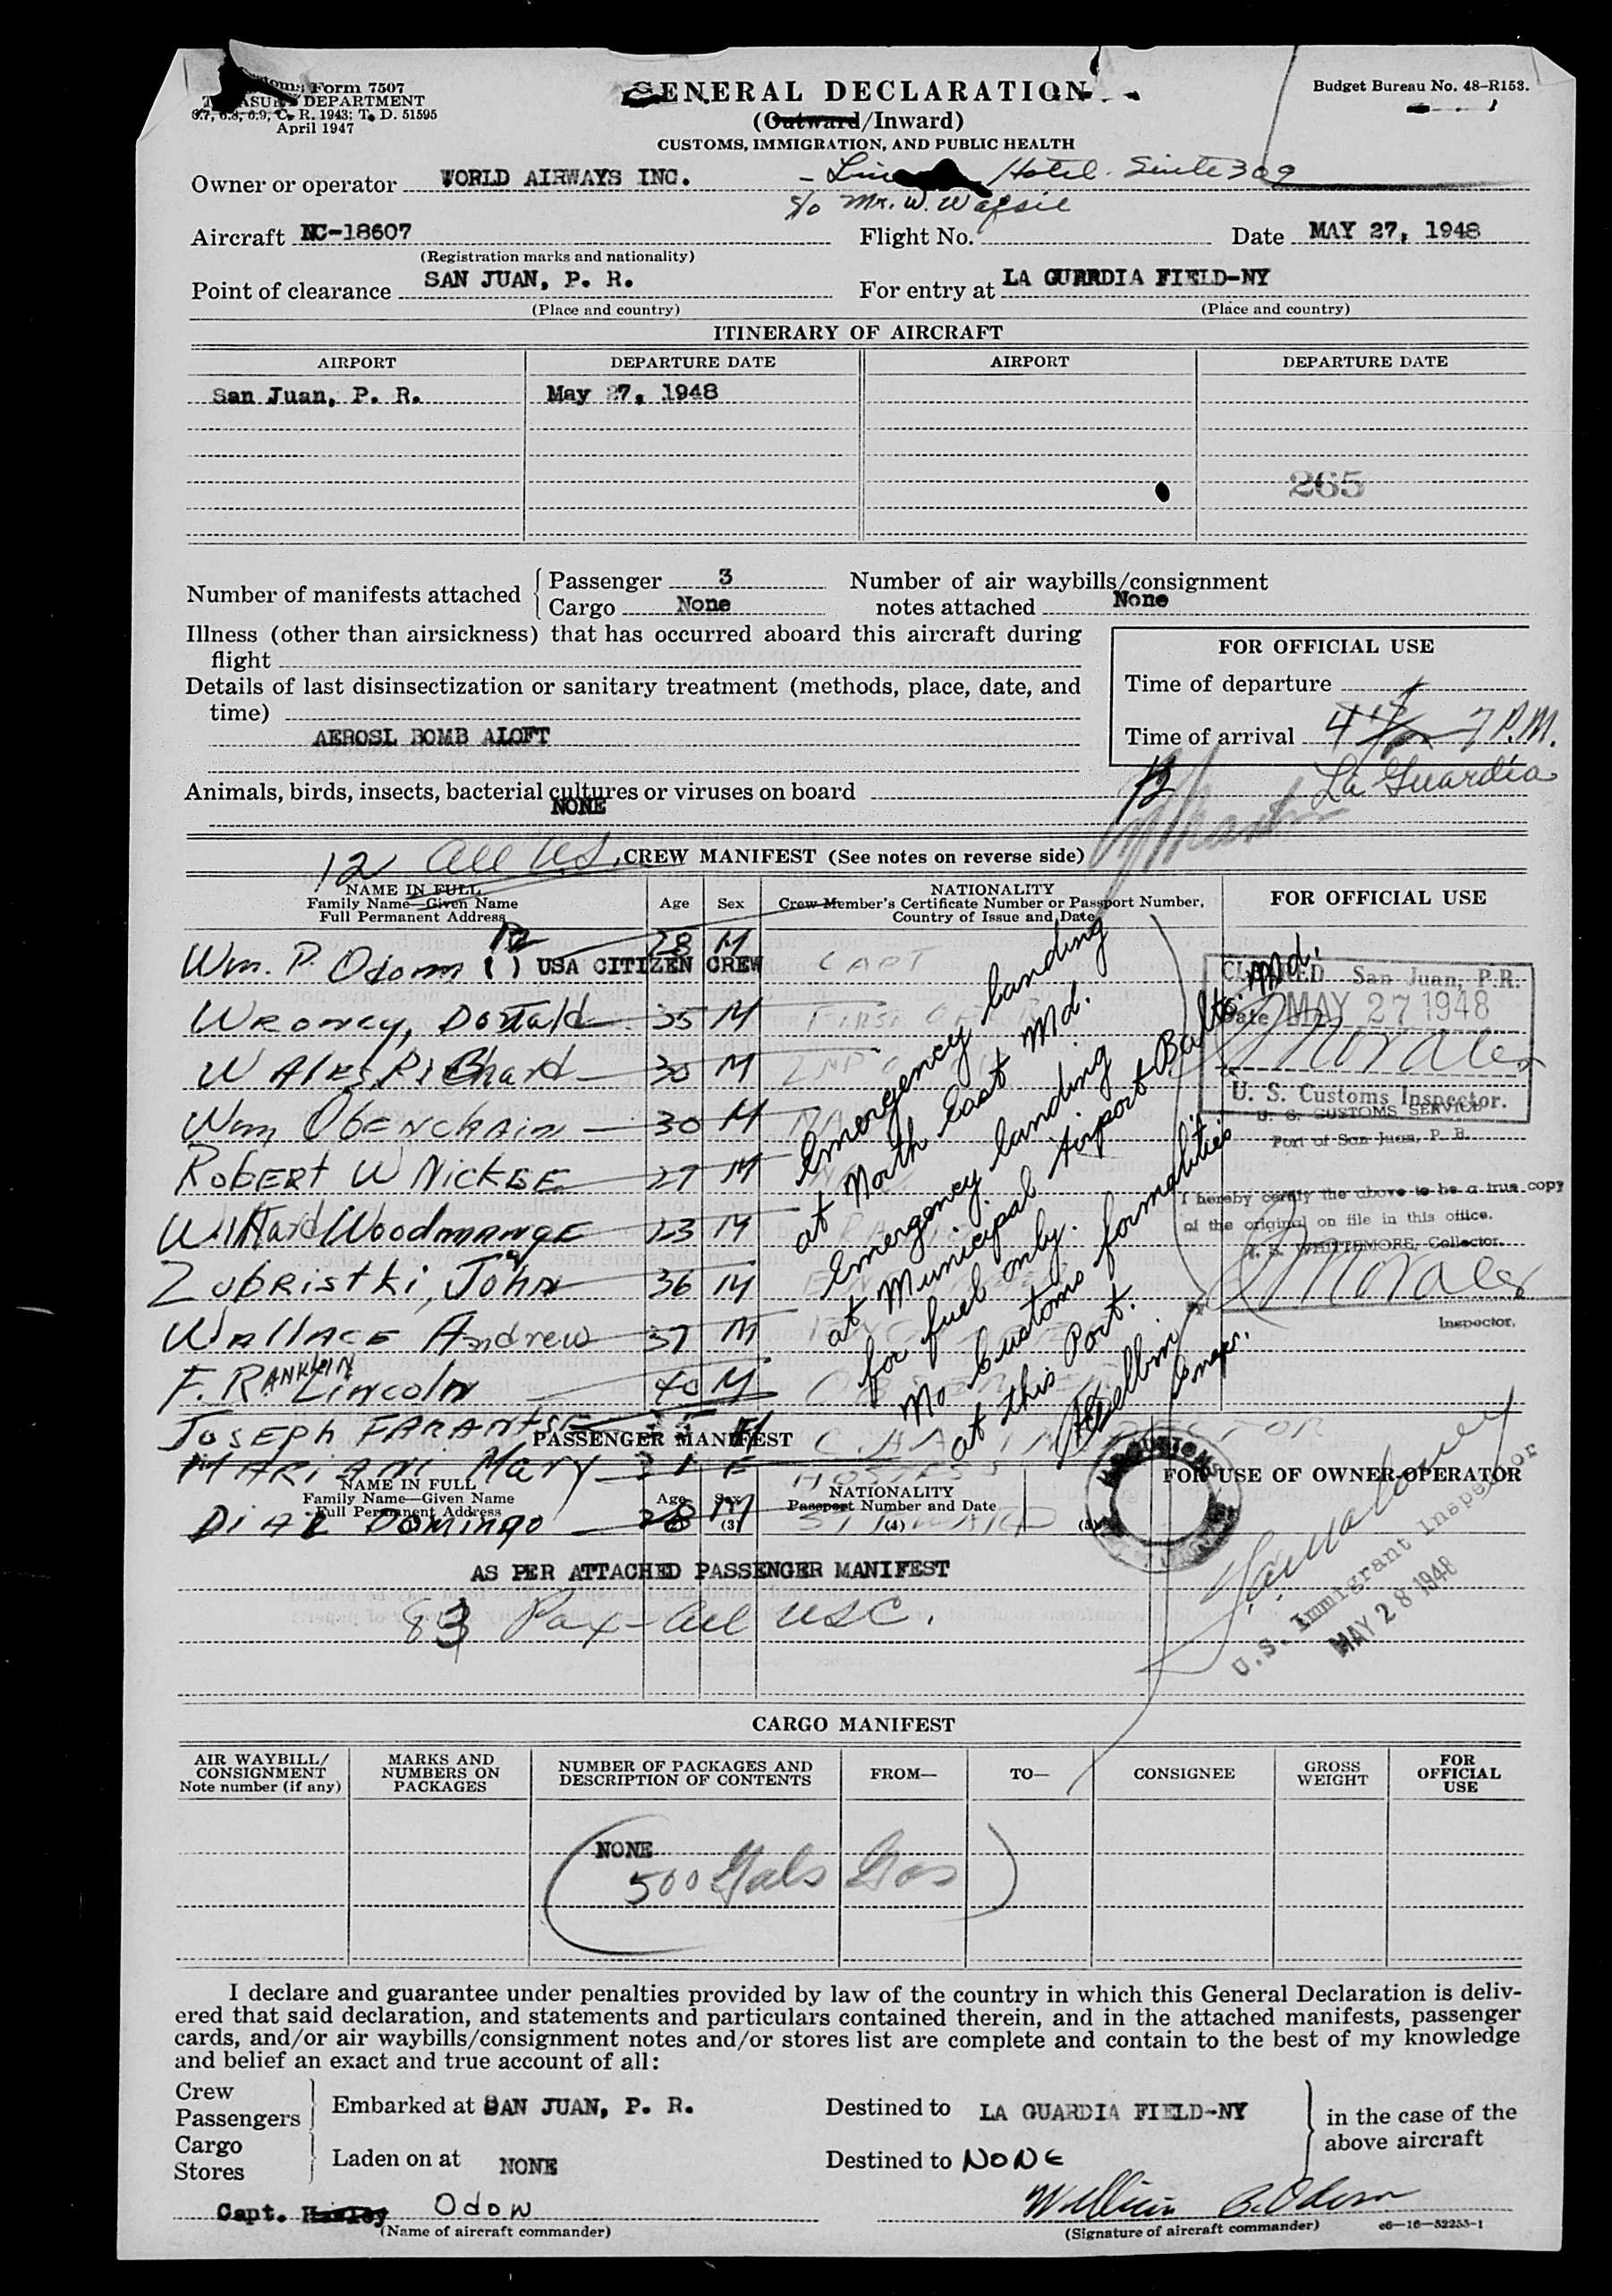 Customs Form 7507
TREASURY DEPARTMENT
6.7, 6.8, 6.9, C. R. 1943; T. D. 51595
April 1947
GENERAL DECLARATION
(Outward/Inward)
CUSTOMS, IMMIGRATION, AND PUBLIC HEALTH
Budget Bureau No. 48-R153.
Owner or operator WORLD AIRWAYS INC. - Hotel. Suite 309
c/o Mr. W.
Aircraft NC-18607 Flight No. Date MAY 27, 1948
(Registration marks and nationality)
Point of clearance SAN JUAN, P. R. For entry at LA GUARDIA FIELD-NY
(Place and country) (Place and country)
ITINERARY OF AIRCRAFT
AIRPORT DEPARTURE DATE AIRPORT DEPARTURE DATE
San Juan, P. R. May 27, 1948
265
Number of manifests attached Passenger 3 Number of air waybills/consignment
Cargo None notes attached None
Illness (other than airsickness) that has occurred aboard this aircraft during
flight
Details of last disinsectization or sanitary treatment (methods, place, date, and
time)
AEROSL BOMB ALOFT
FOR OFFICIAL USE
Time of departure
Time of arrival 7 P.M.
La Guardia
Animals, birds, insects, bacterial cultures or viruses on board
NONE
12 all U.S. CREW MANIFEST (See notes on reverse side)
NAME IN FULL
Family Name—Given Name
Full Permanent Address
Age Sex
NATIONALITY
Crew Member's Certificate Number or Passport Number,
Country of Issue and Date
FOR OFFICIAL USE
12
Wm. P. Odom ( ) USA CITIZEN CREW 28 M CAPT
Wroncy, Donald 35 M FIRST
Wales, Richard 30 M
Wm Obenchain 30 M
ROBERT W NICKEE 27 M
Willard Woodmange 23 M
Zubristki, John 36 M
Wallace Andrew 37 M
F. RANKLIN Lincoln 40 M
JOSEPH FARANTSE M
MARIANI Mary 31 F HOSTESS
DIAZ DOMINGO 28 M STEWARD
Emergency landing
at North East Md.
Emergency landing
at Municipal Airport Balto. Md.
for fuel only.
No Customs formalities
at this Port.
CLEARED San Juan, P.R.
Date MAY 27 1948
Morales
U. S. Customs Inspector.
U. S. CUSTOMS SERVICE
Port of San Juan, P. R.
I hereby certify the above to be a true copy
of the original on file in this office.
WHITTEMORE, Collector.
Morales
Inspector.
PASSENGER MANIFEST
NAME IN FULL
Family Name—Given Name
Full Permanent Address
Age Sex
(3)
NATIONALITY
Passport Number and Date
(4)
(5)
FOR USE OF OWNER-OPERATOR
AS PER ATTACHED PASSENGER MANIFEST
83 Pax - all USC.
U.S. Immigrant Inspector
MAY 28 1948
CARGO MANIFEST
AIR WAYBILL/
CONSIGNMENT
Note number (if any)
MARKS AND
NUMBERS ON
PACKAGES
NUMBER OF PACKAGES AND
DESCRIPTION OF CONTENTS
FROM—
TO—
CONSIGNEE
GROSS
WEIGHT
FOR
OFFICIAL
USE
NONE
500 Gals Gas
I declare and guarantee under penalties provided by law of the country in which this General Declaration is deliv-
ered that said declaration, and statements and particulars contained therein, and in the attached manifests, passenger
cards, and/or air waybills/consignment notes and/or stores list are complete and contain to the best of my knowledge
and belief an exact and true account of all:
Crew
Passengers Embarked at SAN JUAN, P. R. Destined to LA GUARDIA FIELD-NY
Cargo
Stores Laden on at NONE Destined to NONE
in the case of the
above aircraft
Capt. Odom William P. Odom
(Name of aircraft commander) (Signature of aircraft commander) c6—16—52253-1